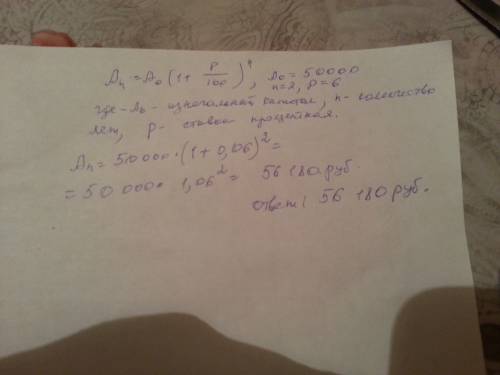 Aₙ = A₀ (1 + P/100)ⁿ, A₀ = 50000
n=2, P=6
где - A₀ - изначальный капитал, n - количество
лет, P - ставка процентная.
Aₙ = 50000 · (1 + 0,06)² =
= 50 000 · 1,06² = 56 180 руб.
ответ: 56 180 руб.